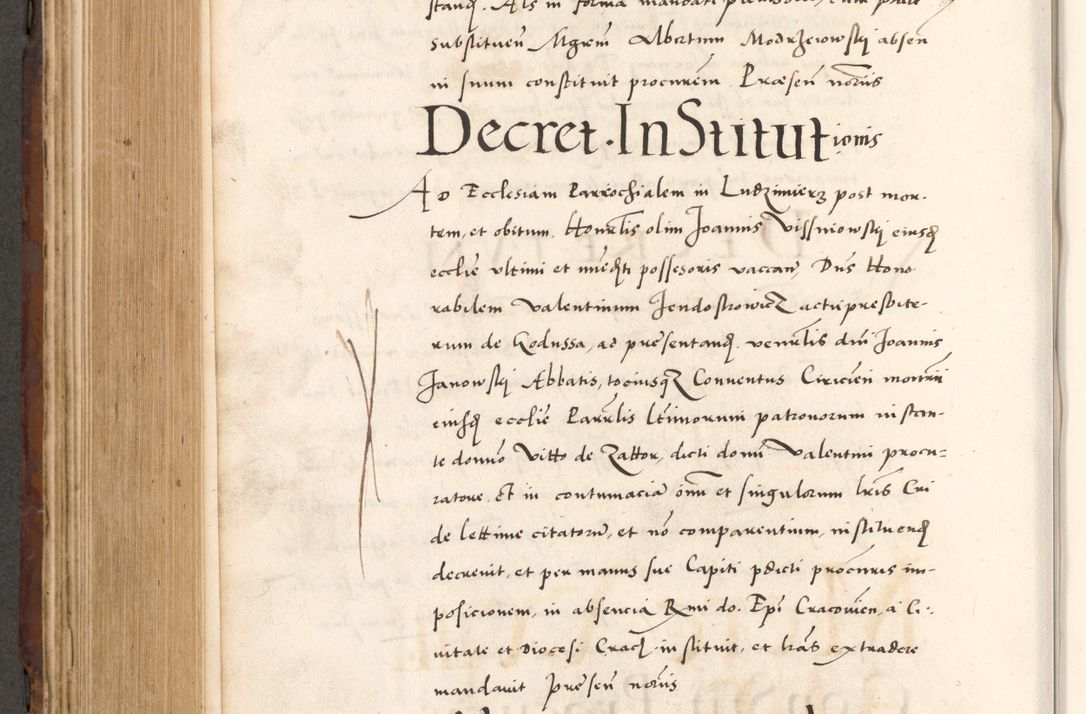 substituen Mgrm Albertum Modrzeiowskj absen
in suum constituit procurem. Præsen notriis
Decret. InStitutionis
Ad Ecclesiam Parrochialem in Ludzimierz post mor-
tem, et obitum. Honrlis olim Joannis Vissniowskj eiusdem
ecclie ultimi et imediti possessoris vaccan, Dns Hono
rabilem Valentinum Jendostrowicz actu presbite-
rum de Kodussa, ad presentand. venrlis dni Joannis
Janowskj Abbatis, tociusq Conventus Ciricien monrii
eiusd ecclie Parrlis ltimorum patronorum instan-
te domno Vitto de Zattor, dicti domni Valentini procu-
ratore. Et in contumacia omni et singulorum hris Cri
de lettime citatoru, et no comparentium, instituend
decrevit, et per manus sue Capiti pdicti procuris im-
posicionem, in absencia Rmi do. Epi Cracovien, a Ci.
vitate et Diocesi Crac. instituit, et lras extradere
mandavit presen notriis